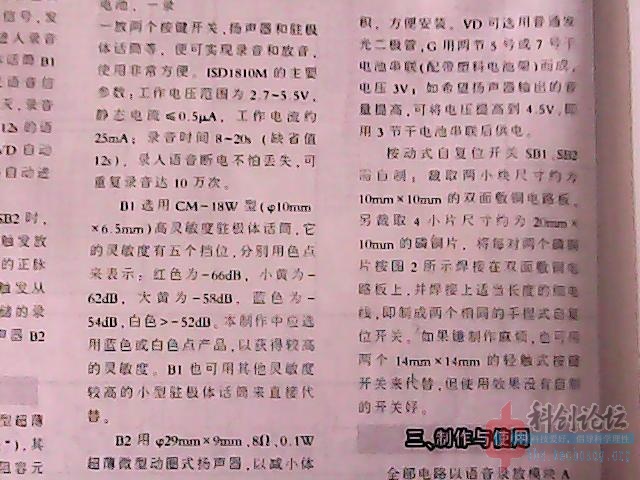 信号，发
进入录音
话筒 B1
语音信
天，录音
12s 的语
VD 自动
自动进
SB2 时，
触发放
的正脉
触发从
储的录
声器 B2
型超薄
"），其
阻容元
电池，一录
一放两个按键开关，扬声器和驻极
体话筒等，便可实现录音和放音，
使用非常方便。ISD1810M 的主要
参数：工作电压范围为 2.7~5.5V，
静态电流≤0.5μA，工作电流约
25mA；录音时间 8~20s（缺省值
12s），录入语音断电不怕丢失，可
重复录音达 10 万次。
B1 选用 CM-18W 型（φ10mm
×6.5mm）高灵敏度驻极体话筒，它
的灵敏度有五个挡位，分别用色点
来表示：红色为-66dB，小黄为-
62dB，大黄为-58dB，蓝色为-
54dB，白色>-52dB。本制作中应选
用蓝色或白色点产品，以获得较高
的灵敏度。B1 也可用其他灵敏度
较高的小型驻极体话筒来直接代
替。
B2 用 φ29mm×9mm，8Ω、0.1W
超薄微型动圈式扬声器，以减小体
积，方便安装。VD 可选用普通发
光二极管，G 用两节 5 号或 7 号干
电池串联（配带塑料电池架）而成，
电压 3V；如希望扬声器输出的音
量提高，可将电压提高到 4.5V，即
用 3 节干电池串联后供电。
按动式自复位开关 SB1、SB2
需自制：裁取两小块尺寸约为
10mm×10mm 的双面敷铜电路板。
另裁取 4 小片尺寸约为 20mm×
10mm 的磷铜片，将每对两个磷铜
片按图 2 所示焊接在双面敷铜电
路板上，并焊接上适当长度的细电
线，即制成两个相同的手捏式自复
位开关。如果嫌制作麻烦，也可用
两个 14mm×14mm 的轻触式按键
开关来代替，但使用效果没有自制
的开关好。
三、制作与使用
全部电路以语音录放模块 A
科创论坛